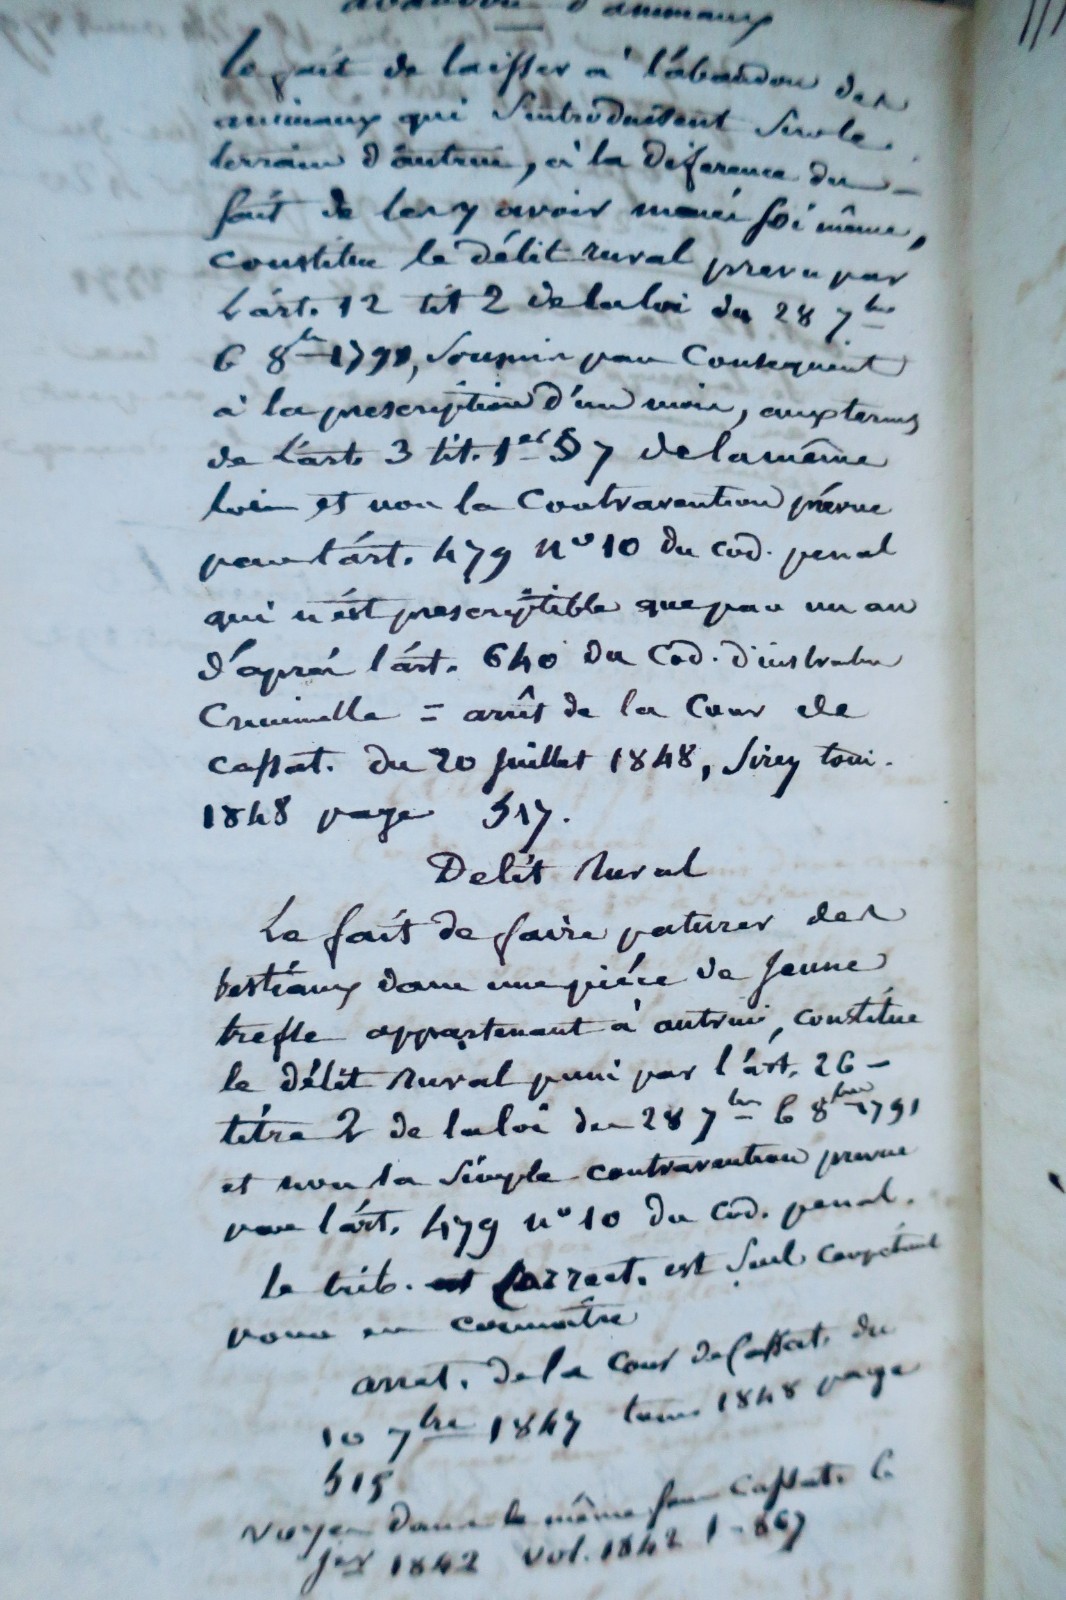 abandon d'animaux
le fait de laisser à l'abandon des
animaux qui s'introduisent sur le
terrain d'autrui, à la diference du
fait de les y avoir menés soi même,
constitue le délit rural prevu par
l'art. 12 tit 2 de la loi du 28 7bre
6 8bre 1791, soumis par consequent
à la prescription d'un mois, aux termes
de l'art. 3 tit. 1er § 7 de la même
loi et non la contravention prévue
par l'art. 479 n° 10 du cod. penal
qui n'est prescriptible que par un an
d'après l'art. 640 du Cod. d'instruction
Criminelle = arrêt de la Cour de
cassat. du 20 juillet 1848, Sirey tom.
1848 page 517.
Delit Rural
Le fait de faire paturer des
bestiaux dans une pièce de jeune
trefle appartenant à autrui, constitue
le délit rural puni par l'art. 26
titre 2 de la loi du 28 7bre 6 8bre 1791
et non la simple contravention prevue
par l'art. 479 n° 10 du cod. penal.
le trib. correct. est seul compétent
pour en connaître
arret. de la Cour de Cassat. du
10 7bre 1847 tome 1848 page
515
voyez dans le même sens cassat. 6
jer 1842 vol. 1842 1-867